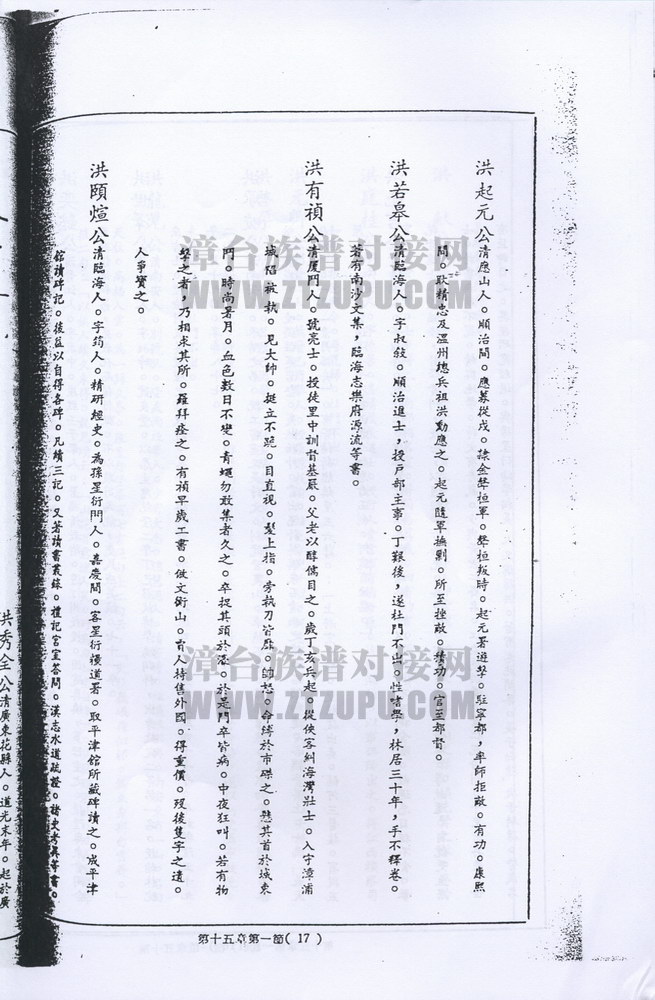 洪起元公清應山人。順治間。應募從戎。隸金聲桓軍。聲桓叛時。起元署遊擊。駐寧都，率師拒敵。有功。康熙
間。耿精忠及溫州總兵祖洪勳應之。起元隨軍撫剿。所至挫敵。積功。官至都督。
洪若皋公清臨海人。字叔敍。順治進士，授戶部主事。丁艱後，遂杜門不出。性嗜學，林居三十年，手不釋卷。
著有南沙文集，臨海志樂府源流等書。
洪有禎公清廈門人。號亮士。授徒里中訓督甚嚴。父老以醇儒目之。歲丁亥兵起。從俠客糾海灣壯士。入守漳浦
城陷被執。見大帥。挺立不跪。目直視。髮上指。旁執刀皆靡。帥怒。命縛於市磔之。懸其首於城東
門。時尚暑月。血色數日不變。青蠅勿敢集者久之。卒捉其頭於溪。於是門卒皆病。中夜狂叫。若有物
擊之者，乃相求其所。羅拜瘞之。有禎早歲工書。倣文衡山。有人持售外國。得重價。歿後隻字之遺。
人爭寶之。
洪頤煊公清臨海人。字筠人。精研經史。為孫星衍門人。嘉慶間。客星衍糧道署。取平津館所藏碑讀之。成平津
館讀碑記。後益以自得各碑。凡續三記。又著讀書叢錄。禮記宮室答問。漢志水道疏證。諸史考異等書。
洪秀全公清廣東花縣人。道光末年。起於廣
第十五章第一節( 17 )
漳台族谱对接网
WWW.ZTZUPU.COM
漳台族谱对接网
WWW.ZTZUPU.COM